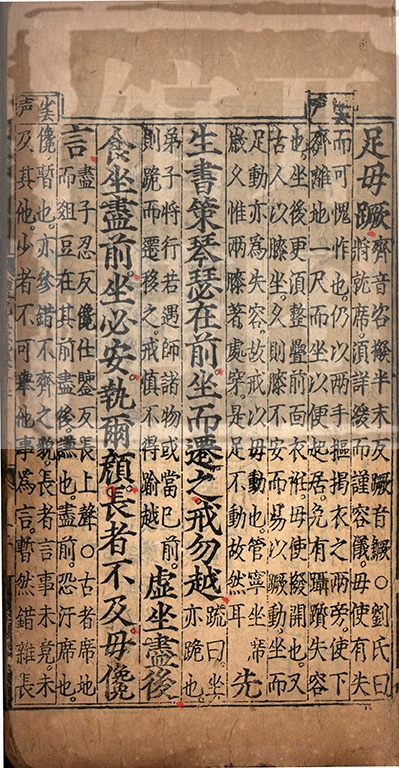 足毋蹶齊音咨撥半末反蹶音鱖○劉氏曰
將就席須詳緩而謹容儀毋使有失
而可愧怍也。仍以兩手摳揭衣之兩旁。使下
齊離地一尺而坐以便起居。免有躡躓失容
也。坐後更須整疊前面衣衽。毋使撥開也。又
古人以膝坐。久則膝不安而易以蹶動。坐而
足動亦為失容。故戒以毋動也。管寧坐席
歲久惟兩膝著處穿。是足不動故然耳先
生書策琴瑟在前坐而遷之戒勿越疏曰。坐
亦跪也。
弟子將行若遇師諸物或當己前。
則跪而遷移之。戒慎不得踰越虛坐盡後
食坐盡前。坐必安執爾顏。長者不及毋儳
言盡子忍反儳仕鑒反長上聲○古者席地
而俎豆在其前盡後。謙也。盡前。恐汙席也。
儳。暫也。亦參錯不齊之貌。長者言事未竟未
及其他。少者不可舉他事為言。暫然錯雜長